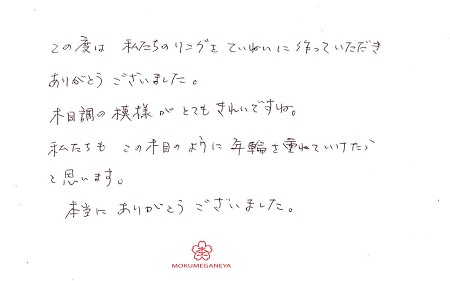 この度は 私たちのリングをていねいに作っていただき
ありがとう ございました。
木目調の模様が とてもきれいですね。
私たちも この木目のように 年輪を重ねていけたら
と思います。
本当に ありがとう ございました。
MOKUMEGANEYA